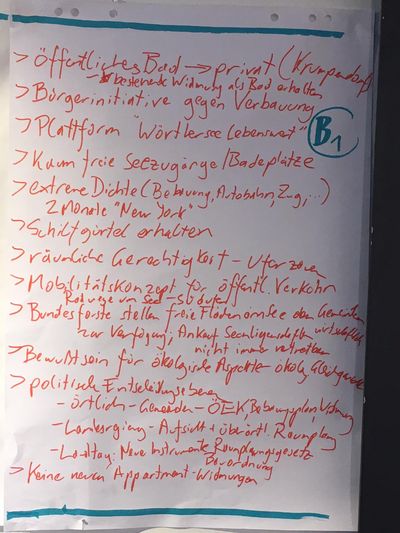 > öffentliches Bad → privat (Krumpendorf)
- bestehende Widmung als Bad erhalten
> Bürgerinitiative gegen Verbauung
> Plattform "Wörthersee Lebenswert"
B1
> Kaum freie Seezugänge/Badeplätze
> extreme Dichte (Bebauung, Autobahn, Zug, ...)
2 Monate "New York"
> Schilfgürtel erhalten
> räumliche Gerechtigkeit - Uferzonen
> Mobilitätskonzept für öffentl. Verkehr
Radwege um See - Südufer
> Bundesforste stellen freie Flächen am See den Gemeinden
zur Verfügung; Ankauf Seeliegenschaften wirtschaftlich
nicht immer vertretbar
> Bewußtsein für ökologische Aspekte ökolog. Gleichgewicht
> politische Entscheidungsebenen
- örtlich - Gemeinden - ÖEK, Bebauungsplan, Widmung
- Landesregierung - Aufsicht + überörtl. Raumplang
- Landtag: Neue Instrumente Raumplanungsgesetz
Bauordnung
> Keine neuen Appartment-Widmungen